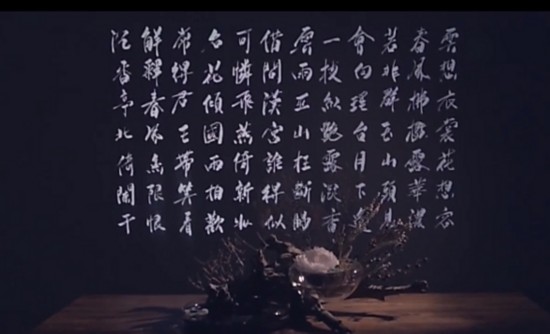 雲想衣裳花想容
春風拂檻露華濃
若非群玉山頭見
會向瑤台月下逢
一枝紅艷露凝香
雲雨巫山枉斷腸
借問漢宮誰得似
可憐飛燕倚新妝
名花傾國兩相歡
常得君王帶笑看
解釋春風無限恨
沉香亭北倚闌干